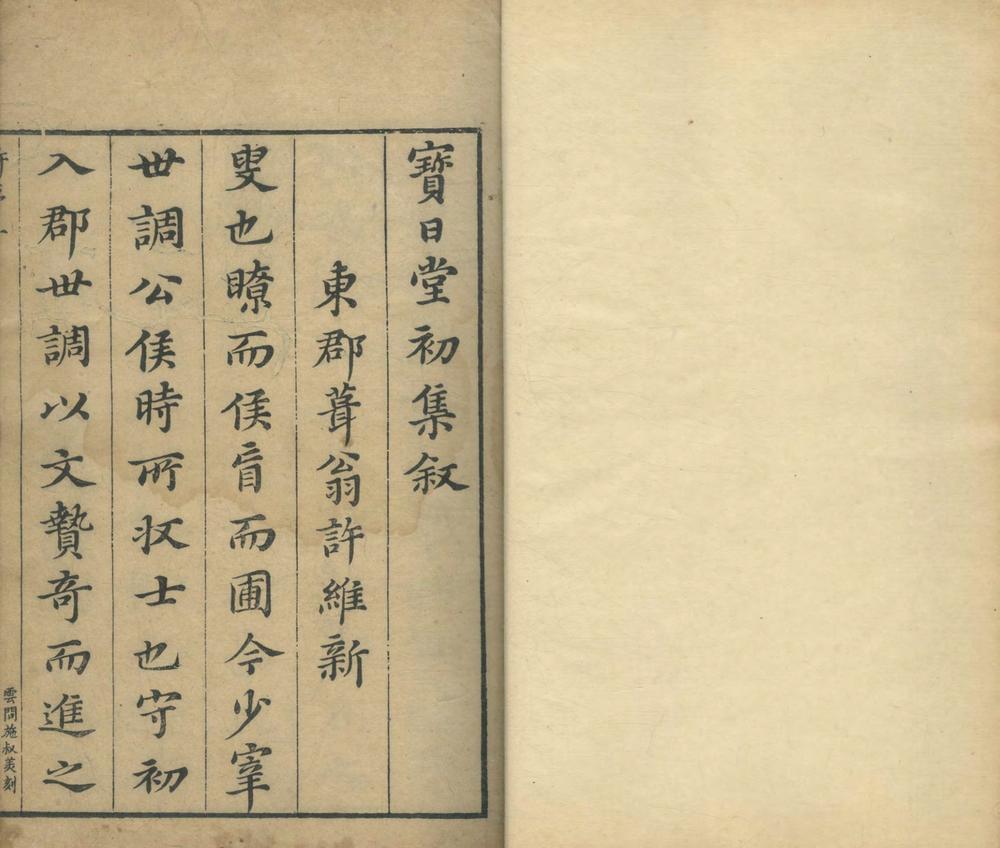 寳日堂初集叙
東郡葺翁許維新
叟也瞭而侯盲而圃今少宰
世調公侯時所收士也守初
入郡世調以文贄竒而進之
雲間施叔美刻